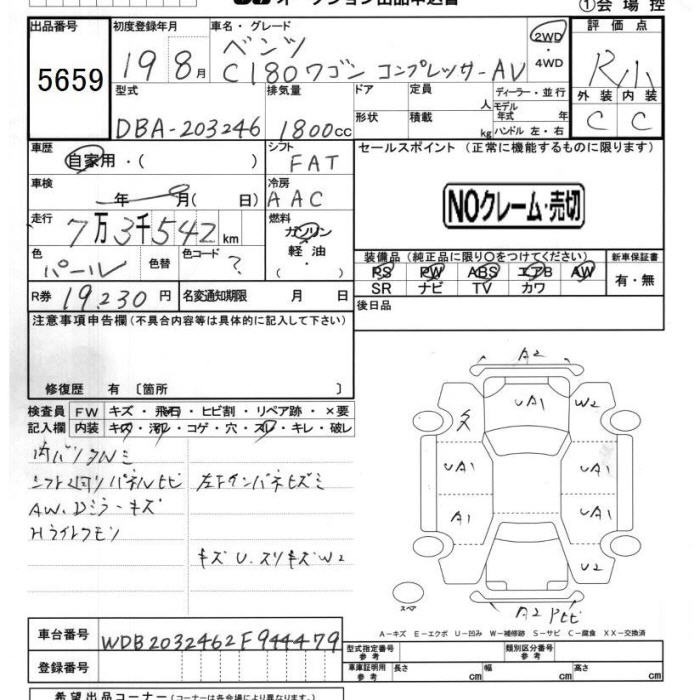 オークション出品申込書
①会場控
出品番号
5659
初度登録年月
19 8月
車名・グレード
ベンツ
C180ワゴン コンプレッサーAV
2WD
・4WD
評価点
R小
外装 内装
C C
型式
DBA-203246
排気量
1800cc
ドア
形状
定員 人
積載 kg
ディーラー・並行
モデル年式 年
ハンドル 左・右
車歴
自家用・( )
シフト
FAT
セールスポイント (正常に機能するものに限ります)
NOクレーム・売切
車検
年 月( 日)
冷房
AAC
走行
7万3千542km
燃料
ガソリン
軽油・
( )
色
パール
色替
色コード
?
装備品(純正品に限り○をつけてください)
新車保証書
PS PW ABS エアB AW
SR ナビ TV カワ
有・無
R券
19,230円
名変通知期限 月 日
後日品
注意事項申告欄(不具合内容等は具体的に記入して下さい)
修復歴 有 〔箇所 〕
検査員
記入欄
FW キズ・飛石・ヒビ割・リペア跡・×要
内装 キズ・汚レ・コゲ・穴・スレ・キレ・破レ
内バンタルミ
シフト廻リパネルヒビ 左下インパネヒズミ
AW.Dミラーキズ
Hライトクモリ
キズU.スリキズW2
A2
UA1
W2
UA1
UA1
A1
UA1
U2
A2 Pヒビ
スペア
A-キズ E-エクボ U-凹み W-補修跡 S-サビ C-腐食 XX-交換済
車台番号
WDB2032462F944479
登録番号
型式指定番号
参考
類別区分番号
参考
車庫証明用
参考
長さ cm
幅 cm
高さ cm
希望出品コーナー(コーナーは各会場により異なります。)